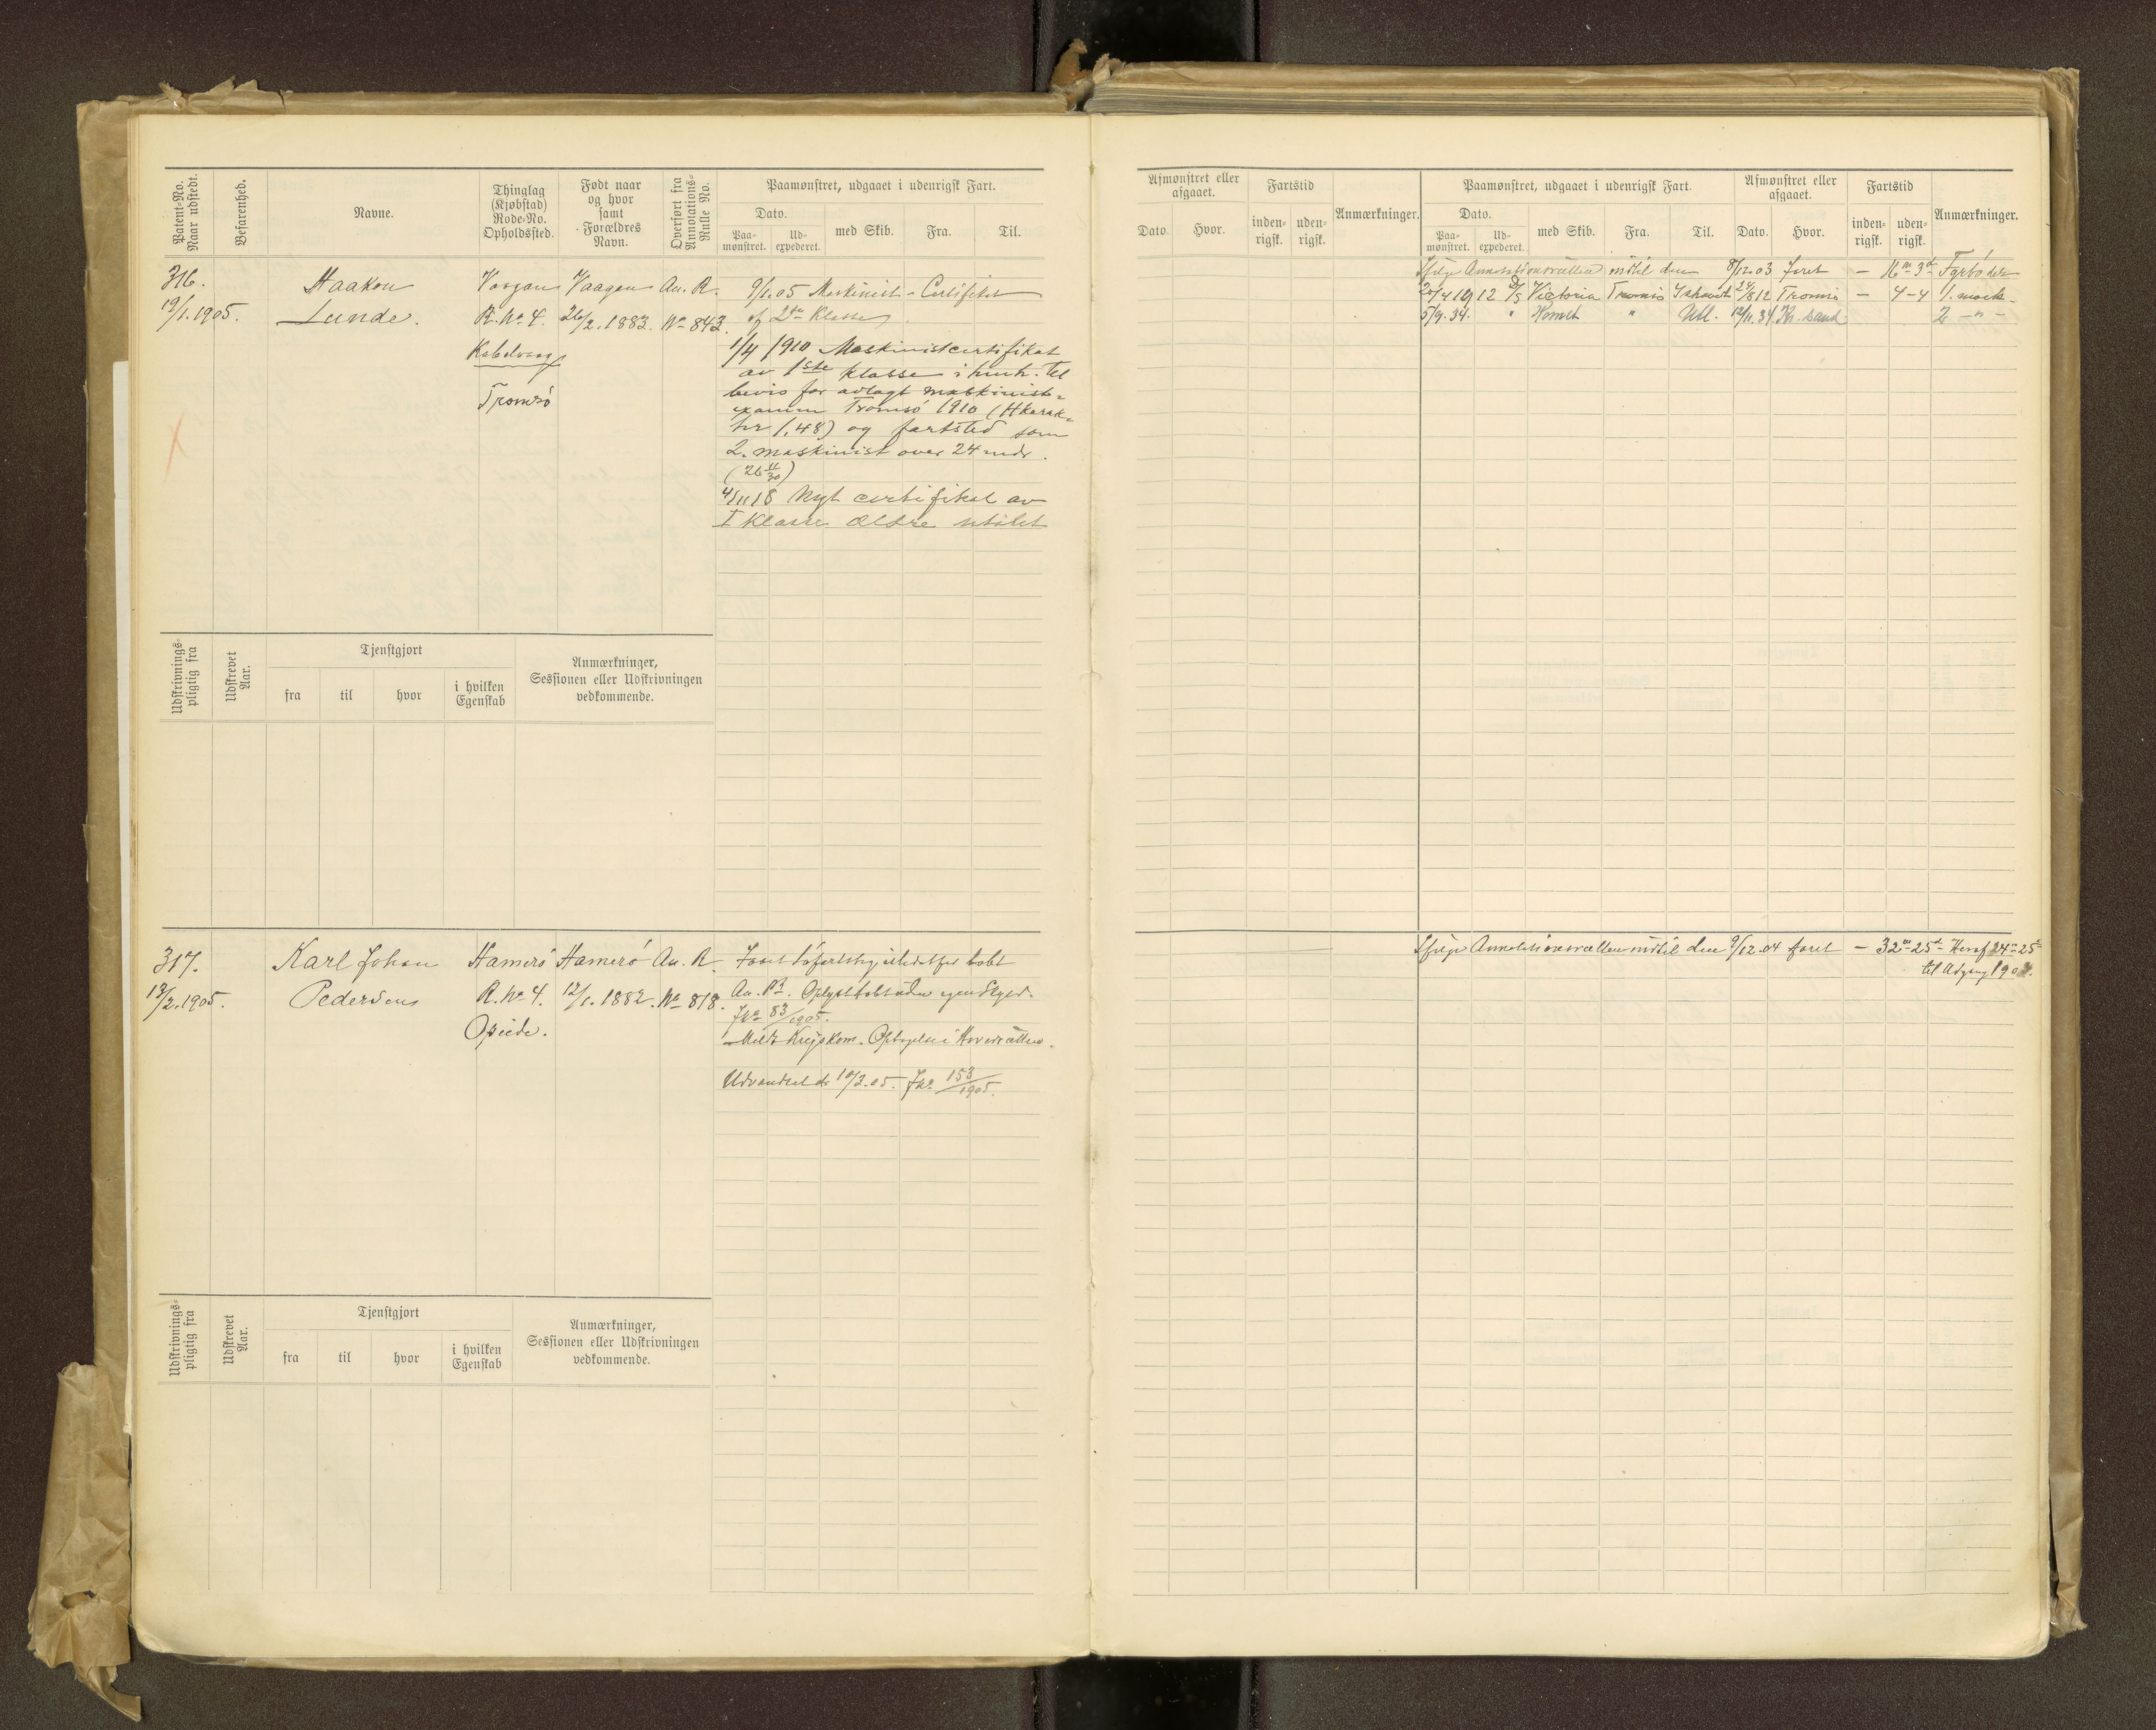 Patent-No. Naar udstedt.
Befarenhed.
Navne.
Thinglag (Kjøbstad) Rode-No. Opholdssted.
Født naar og hvor samt Forældres Navn.
Overført fra Annotations-Rulle No.
Paamønstret, udgaaet i udenrigsk Fart.
Dato.
Paa-mønstret.
Ud-expederet.
med Skib.
Fra.
Til.
316.
19/1.1905.
Haakon
Lunde.
Vaagan
R. No 4.
Kabelvaag
Tromsø
Vaagan
26/2.1883.
An. R.
No 843.
9/1.05 Maskinist-Certifikat
af 2den Klasse
1/4 1910 Maskinistcertifikat
av 1ste klasse i henh. til
bevis for avlagt maskinist-
examen Tromsø 1910 (Hkarak-
ter 1,48) og fartstid som
2. maskinist over 24 mdr.
4/11 18 Nyt certifikat av
I Klasse
Udskrivnings-pligtig fra
Udskrevet Aar.
Tjenstgjort
fra
til
hvor
i hvilken Egenskab
Anmærkninger,
Sessionen eller Udskrivningen
vedkommende.
317.
13/2.1905.
Karl Johan
Pedersen
Hamerø
R. No 4.
Opeide.
Hamerø
12/1.1882.
An. R.
No 818.
tabt
An. Pt. Oplyst tabt uden egen Skyld.
JNo 83/1905.
Meldt Krigskom. Optagelse i Hovedrullen.
Udvandret d. 10/3.05. JNo 153/1905.
Udskrivnings-pligtig fra
Udskrevet Aar.
Tjenstgjort
fra
til
hvor
i hvilken Egenskab
Anmærkninger,
Sessionen eller Udskrivningen
vedkommende.
Afmønstret eller afgaaet.
Dato.
Hvor.
Fartstid
inden-rigsk.
uden-rigsk.
Anmærkninger.
Paamønstret, udgaaet i udenrigsk Fart.
Dato.
Paa-mønstret.
Ud-expederet.
med Skib.
Fra.
Til.
Afmønstret eller afgaaet.
Dato.
Hvor.
Fartstid
inden-rigsk.
uden-rigsk.
Anmærkninger.
Ifølge Annotationsrullen indtil den 8/12.03 faret — 16 m 3 d Fyrbøder
Victoria Tromsø Ishavet 24/8 12 Tromsø — 4-4 1. mask.
5/9.34. " Komet " Utl. 12/11.34 Kr. sand 2 -"-
Ifølge Annotationsrullen indtil den 9/12.04 faret — 32 m 25 d Heraf 24 m 25 d